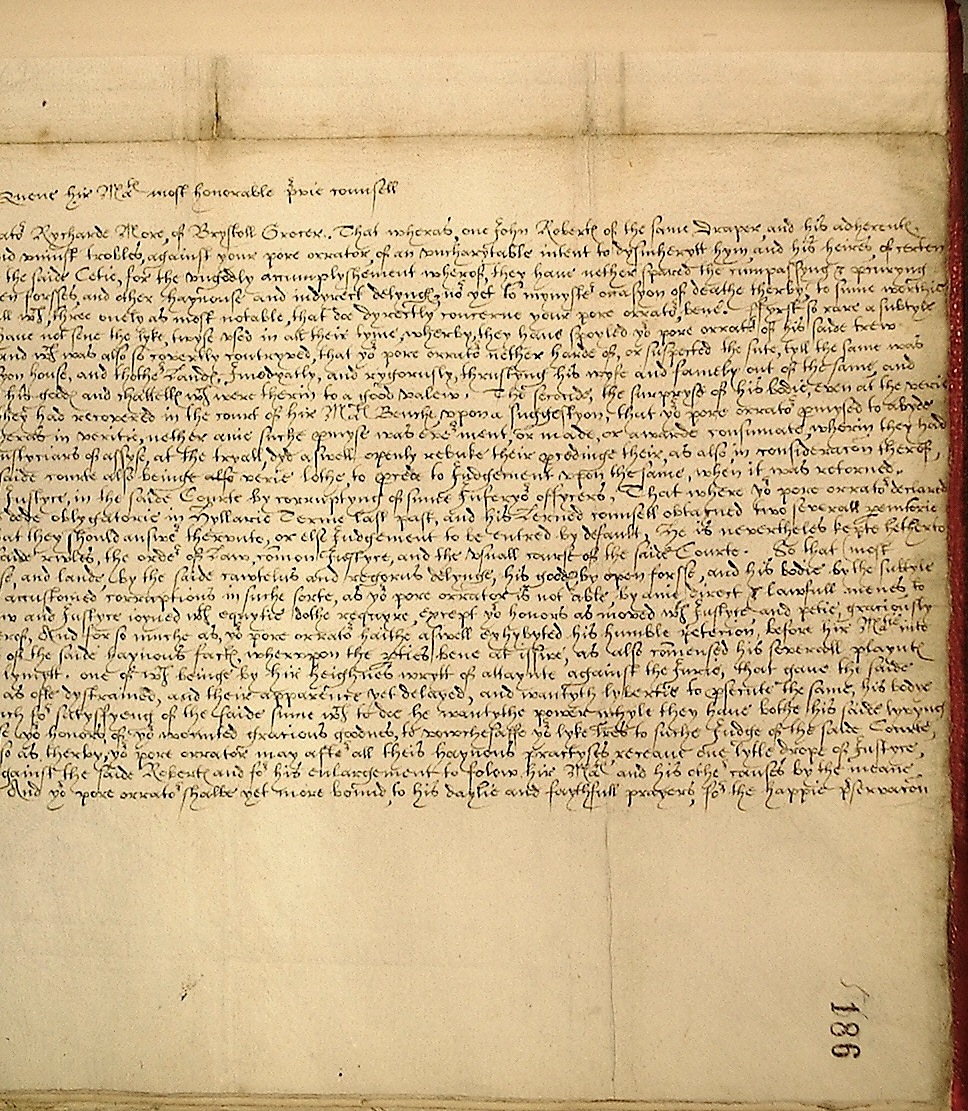 Quene hir Matis most honorable privie counsell
ator Rycharde More, of Brystoll Grocer. That wheras, one John Robertes of the same Draper, and his adherentes
nd uniust trobles, against your pore orrator, of an uncharytable intent to dysinheryt hym, and his heires, of certen
the saide Citie, for the ungodly accumplyshement wherof, they have nether spared the cumpassyng & procuryng
en forsses, and other haynouse and indyrect delynges, nor yet to mynyster occasyon of deathe therby, to sume worthie
ll wch, three onely as most notable, that doe dyrectly concerne your pore orrator, bene. Ffyrst, so rare a subtyle
have not sene the lyke, twyse used in all their tyme, wherby, they have spoyled yor pore orrator of his saide trew
and wch was also so covertly contryved, that yor pore orrator nether harde of, or suspected the sute, tyll the same was
yon house, and thother Landes, Imedyatly, and rygorusly, thrustyng his wyfe and famely out of the same, and
his goodes and chattells wch were therin to a good valew. The seconde, the surpryse of his bodie, even at the verie
they had recovered in the court of hir Maties Benche, uppon a suggestyon, that yor pore orrator promysed to abyde
heras in veritie, nether anie suche promyse was ever ment, or made, or awarde consumate, wherin they had
ustyciars of assyse, at the tryall, dyd aswell openly rebuke their procedinge their, as also in consideracon therof,
saide courte also beinge also verie lothe, to procede to Judgement upon the same, when it was retorned.
Justyce, in the saide Courte by corruptyng of sume Inferyor offycers, That where yor pore orrator declared
dede oblygatorie in Hyllarie Terme last past, and his Lerned counsell obtayned two severall remitories
at they should answer therunto, or els Judgement to be entred by default, He is nevertheles kepte hetherto
saide rewles, the order of Law, comon Justyce, and the usuall course of the saide Courte. So that most
se, and lande by the saide cawtelus and regorus delynge, his goodes by open forsse, and his bodie by the subtyle
accustomed corruptions in suche sorte, as yor pore orrator is not able by anie direct & lawfull menes to
w and Justyce ioyned wth equytie dothe requyre, except yor honors as moved wth Justyce, and petie, graciously
erof, And for so muche as yor pore orrator haithe aswell exhybyted his humble petecion, before hir Matie into
of the saide haynous factes, wheruppon the parties bene at issue, as also comensed his severall playntes
lymytt. one of wch beinge by hir heighnes wrytt of attaynte against the Jurie, that gave the saide
as ofte dystrained, and their apparence yet delayed, and wantyth lybertie to prosecute the same, his bodie
uch for satysffyeng of the saide sume wch to doe he wantythe power whyle they have bothe his saide lyvyng
e yor honors of yor wounted gracious goodnes, to vowchesaffe yor lyke lres to suche Judge of the saide Courte,
so as therby, yor pore orrator may after all theis haynous practyses, receave one lytle drope of Justyce,
against the saide Robertes and for his enlargement to folow hir Matie and his other causes by the meane
And yor pore orrator shalbe yet more bounde, to his daylie and faythfull prayers, for the happie preservacon
186